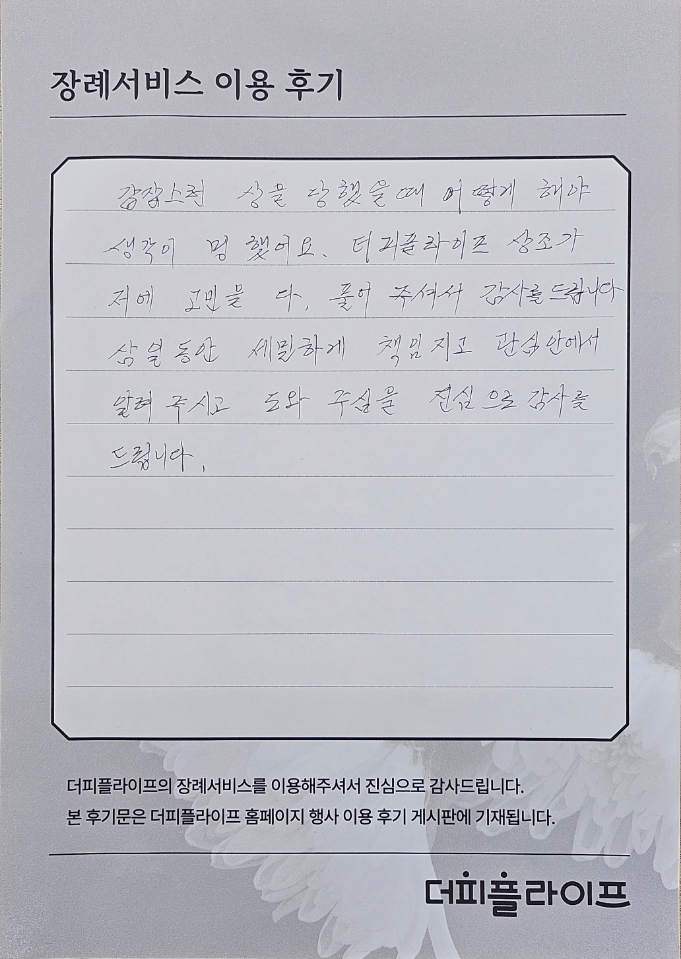 장례서비스 이용 후기
갑잡스런 상을 당했을때 어떻게 해야
생각이 멍 했어요. 더피플라이프 상조가
저에 고민을 다, 풀어 주셔서 감사를드립니다
삼일동안 세밀하게 책임지고 관심안에서
알려 주시고 도와 주심을 진심으로 감사를
드립니다.
더피플라이프의 장례서비스를 이용해주셔서 진심으로 감사드립니다.
본 후기문은 더피플라이프 홈페이지 행사 이용 후기 게시판에 기재됩니다.
더피플라이프